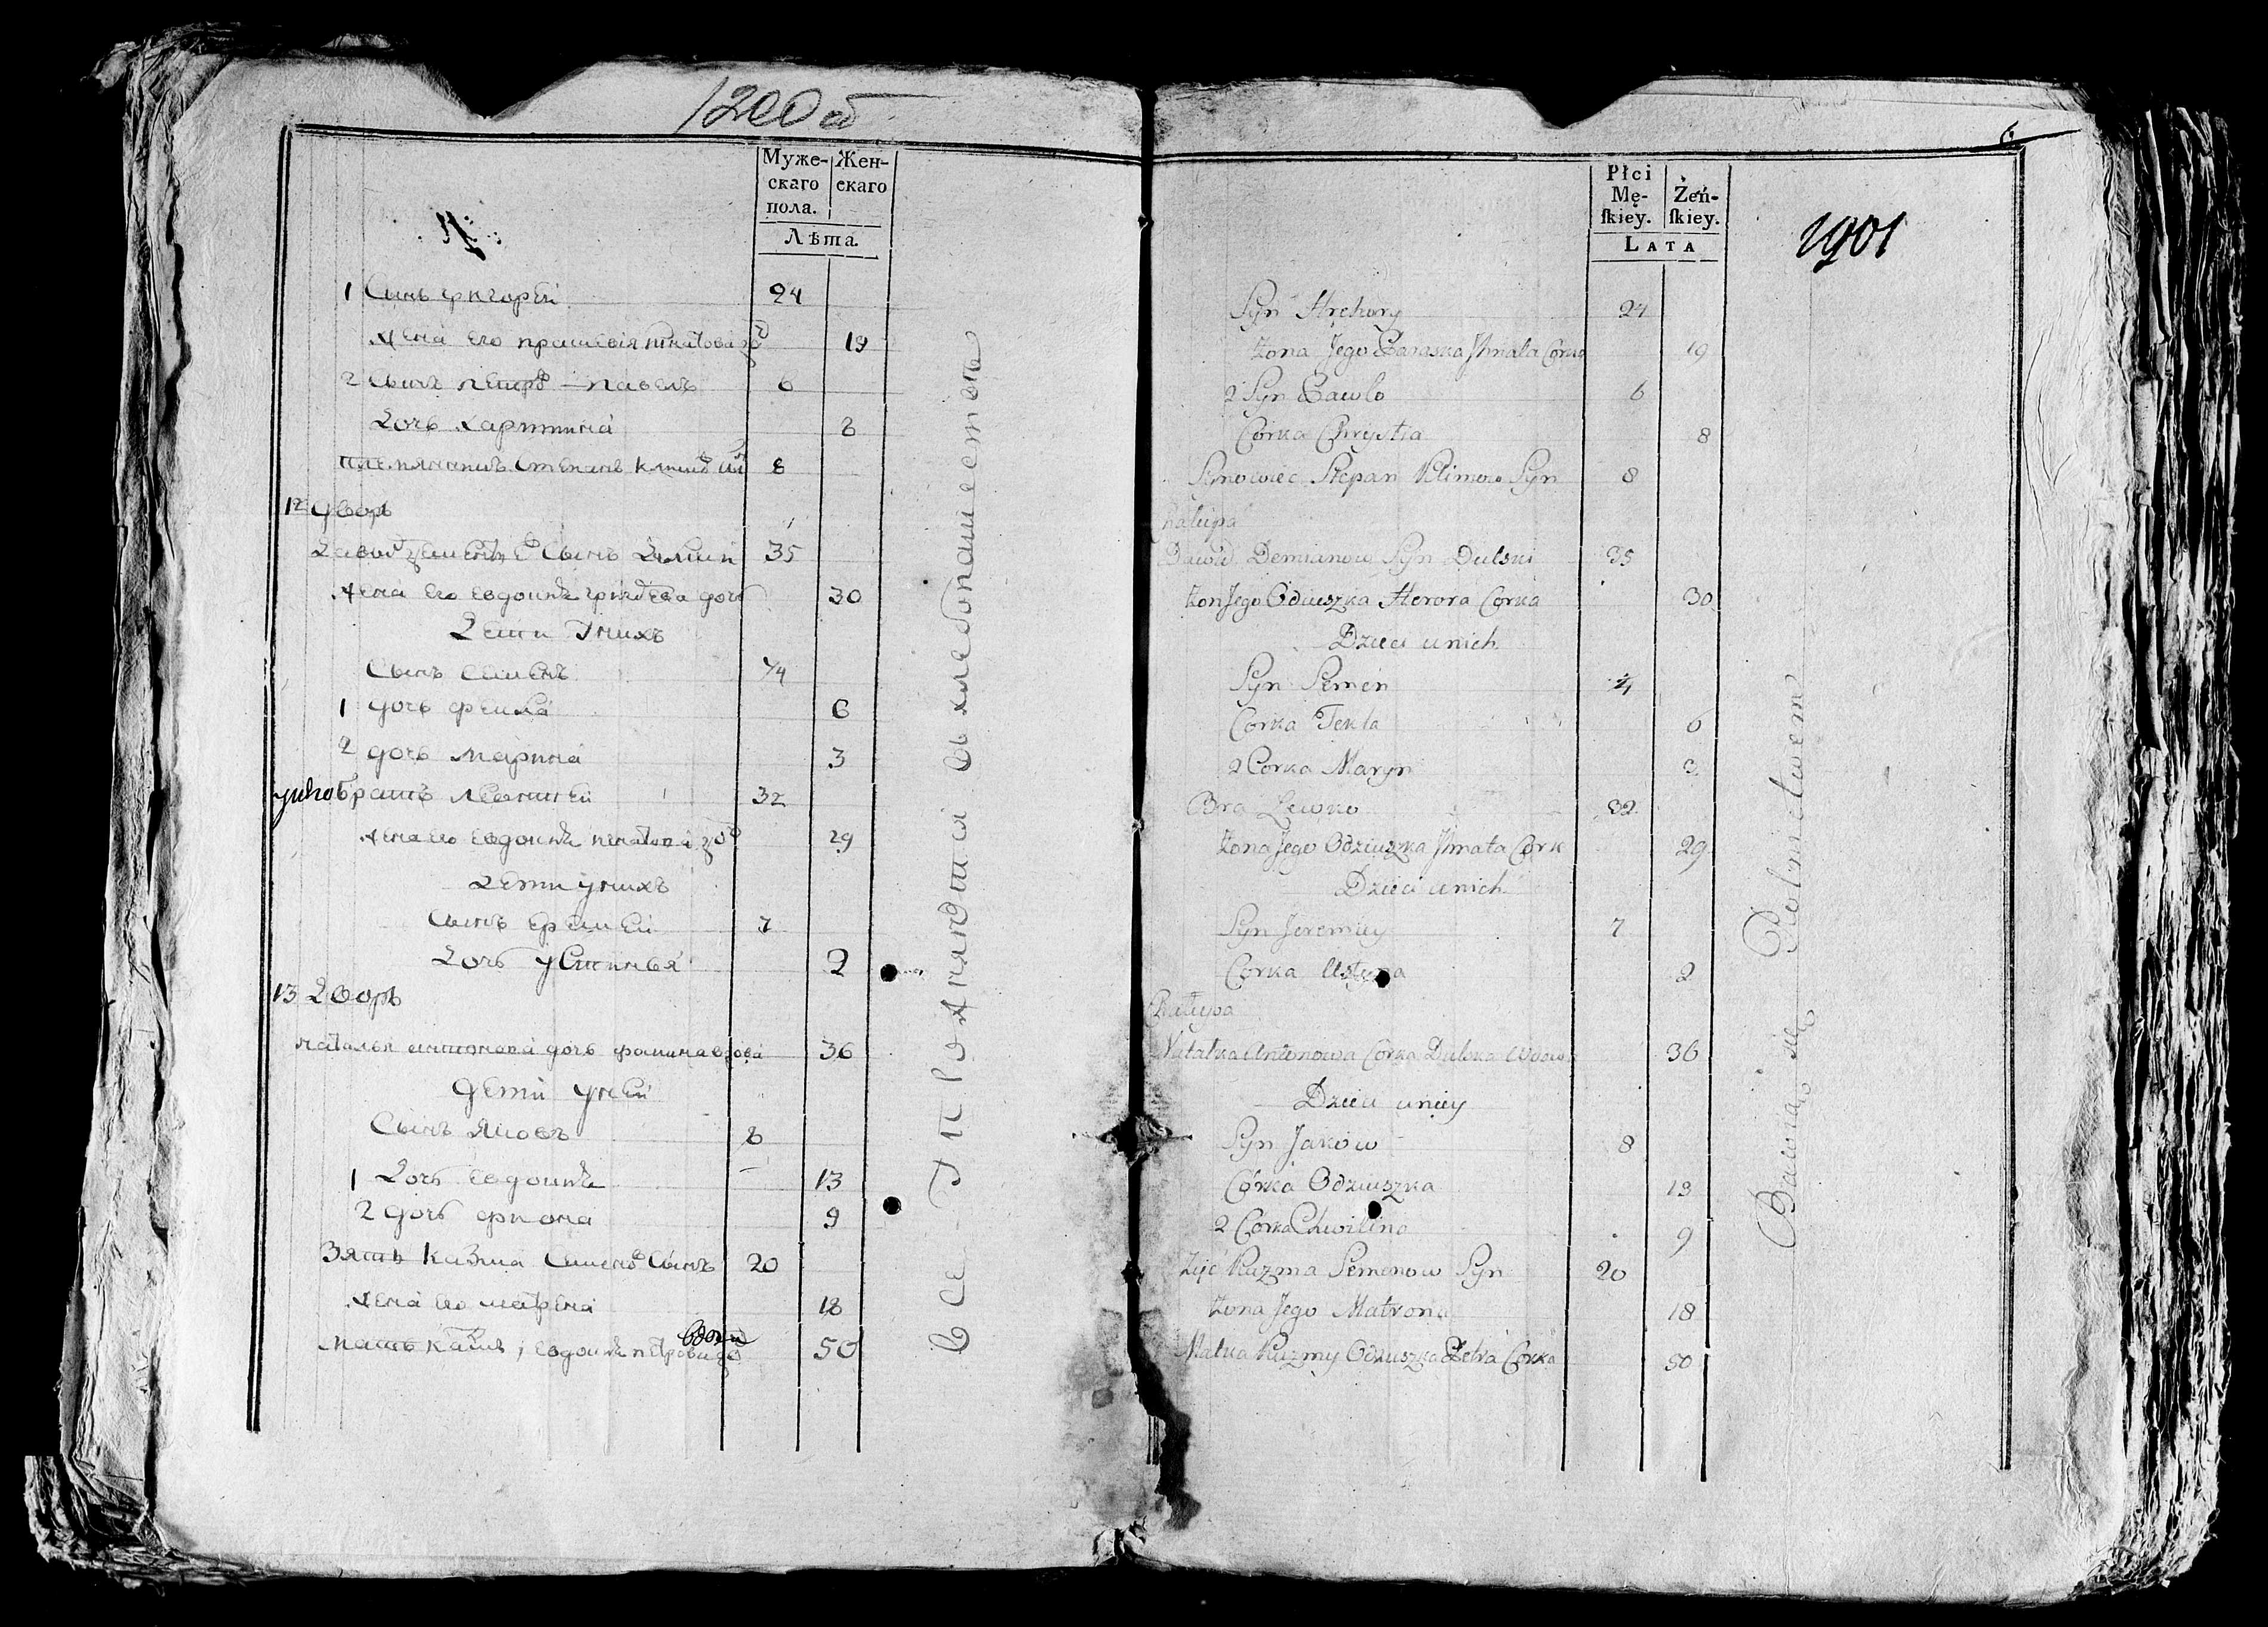 1200 об
Муже-
скаго
пола.
Жен-
скаго
Лѣта.
1 Синъ григорей 24
Жена его прасковія игнатова до 19
2 Сынъ павелъ 6
Дочь Харитина 8
племянникъ Степанъ климо 8
12 дворъ
Давыд демьяно Сынъ 35
Жена его евдокия дочь 30
Дети у нихъ
Сынъ Семенъ 4
1 дочь фекла 6
2 дочь марина 3
братъ 32
Жена его евдокия игнатова до 29
Дети у нихъ
Сынъ еремей 7
Дочь устинья 2
13 Дворъ
наталья антонова дочь вдова 36
Дети у ней
Сынъ яковъ 8
1 Дочь евдокия 13
2 дочь 9
Зять казма Семено Сынъ 20
Жена его матрена 18
мать евдокия петрова вдова 50
Все упражняются в хлебопашестве
1901
Płci
Mę-
ſkiey.
Żeń-
ſkiey.
LATA
Syn Hrehory 24
Żona Jego Paraska Ihnata Córka 19
2 Syn Pawło 6
Córka Chrystia 8
Synowiec Stepan Klimow Syn 8
Chałupa
Dawid Demianow Syn Dulski 35
Żon Jego Odiuszka Córka 30
Dzieci u nich
Syn Semen 4
Córka Tekla 6
2 Córka Maryn 3
Bra Lewko 32
Żona Jego Odziuszka Ihnata Córk 29
Dzieci u nich
Syn Jeremiey 7
Córka 2
Chałupa
Natałka Antonowa Córka Dulska Wdowa 36
Dzieci u niey
Syn Jakow 8
Córka Odziuszka 13
2 Córka Chwilina 9
Zięć Kuzma Semenow Syn 20
Żona Jego Matrona 18
Matka Kuzmy Odziuszka Petra Córka 50
Bawią się Rolnictwem